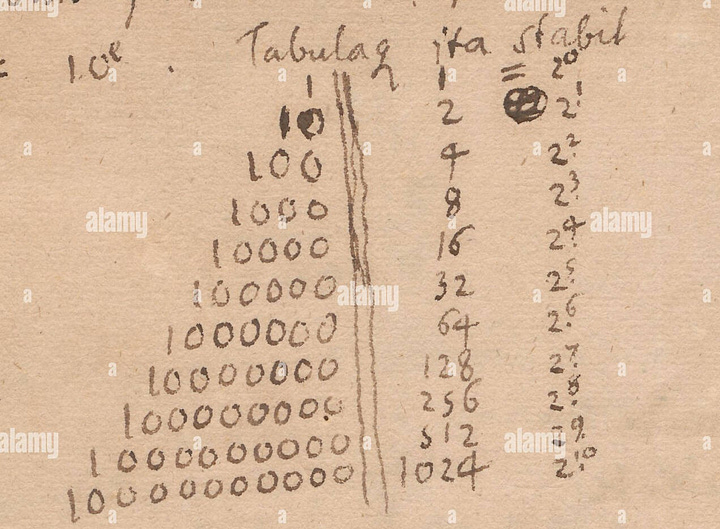 = 10^e . Tabulaq ita stabit
1 || 1 = 2^0
10 || 2 2^1
100 || 4 2^2
1000 || 8 2^3
10000 || 16 2^4
100000 || 32 2^5
1000000 || 64 2^6
10000000 || 128 2^7
100000000 || 256 2^8
1000000000 || 512 2^9
10000000000 || 1024 2^10